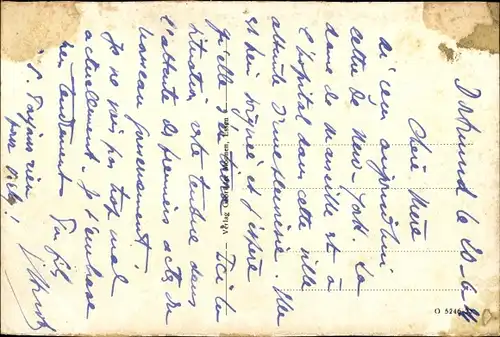 Dortmund le 20-6-
Chère Mère
ai reçu aujourd'hui
lettre de New-York. La
dame de Marseille est à
l'hôpital dans cette ville
atteinte d'une pleurésie. Elle
est bien soignée et j'espère
qu'elle s'en tirera. Ici la
situation reste tendue dans
l'attente des premiers actes du
nouveau gouvernement.
Je ne vais pas trop mal
actuellement. Je t'embrasse
bien tendrement. Ton fils
Toujours rien
pour
Verlag Gebr. Essen
O 5246